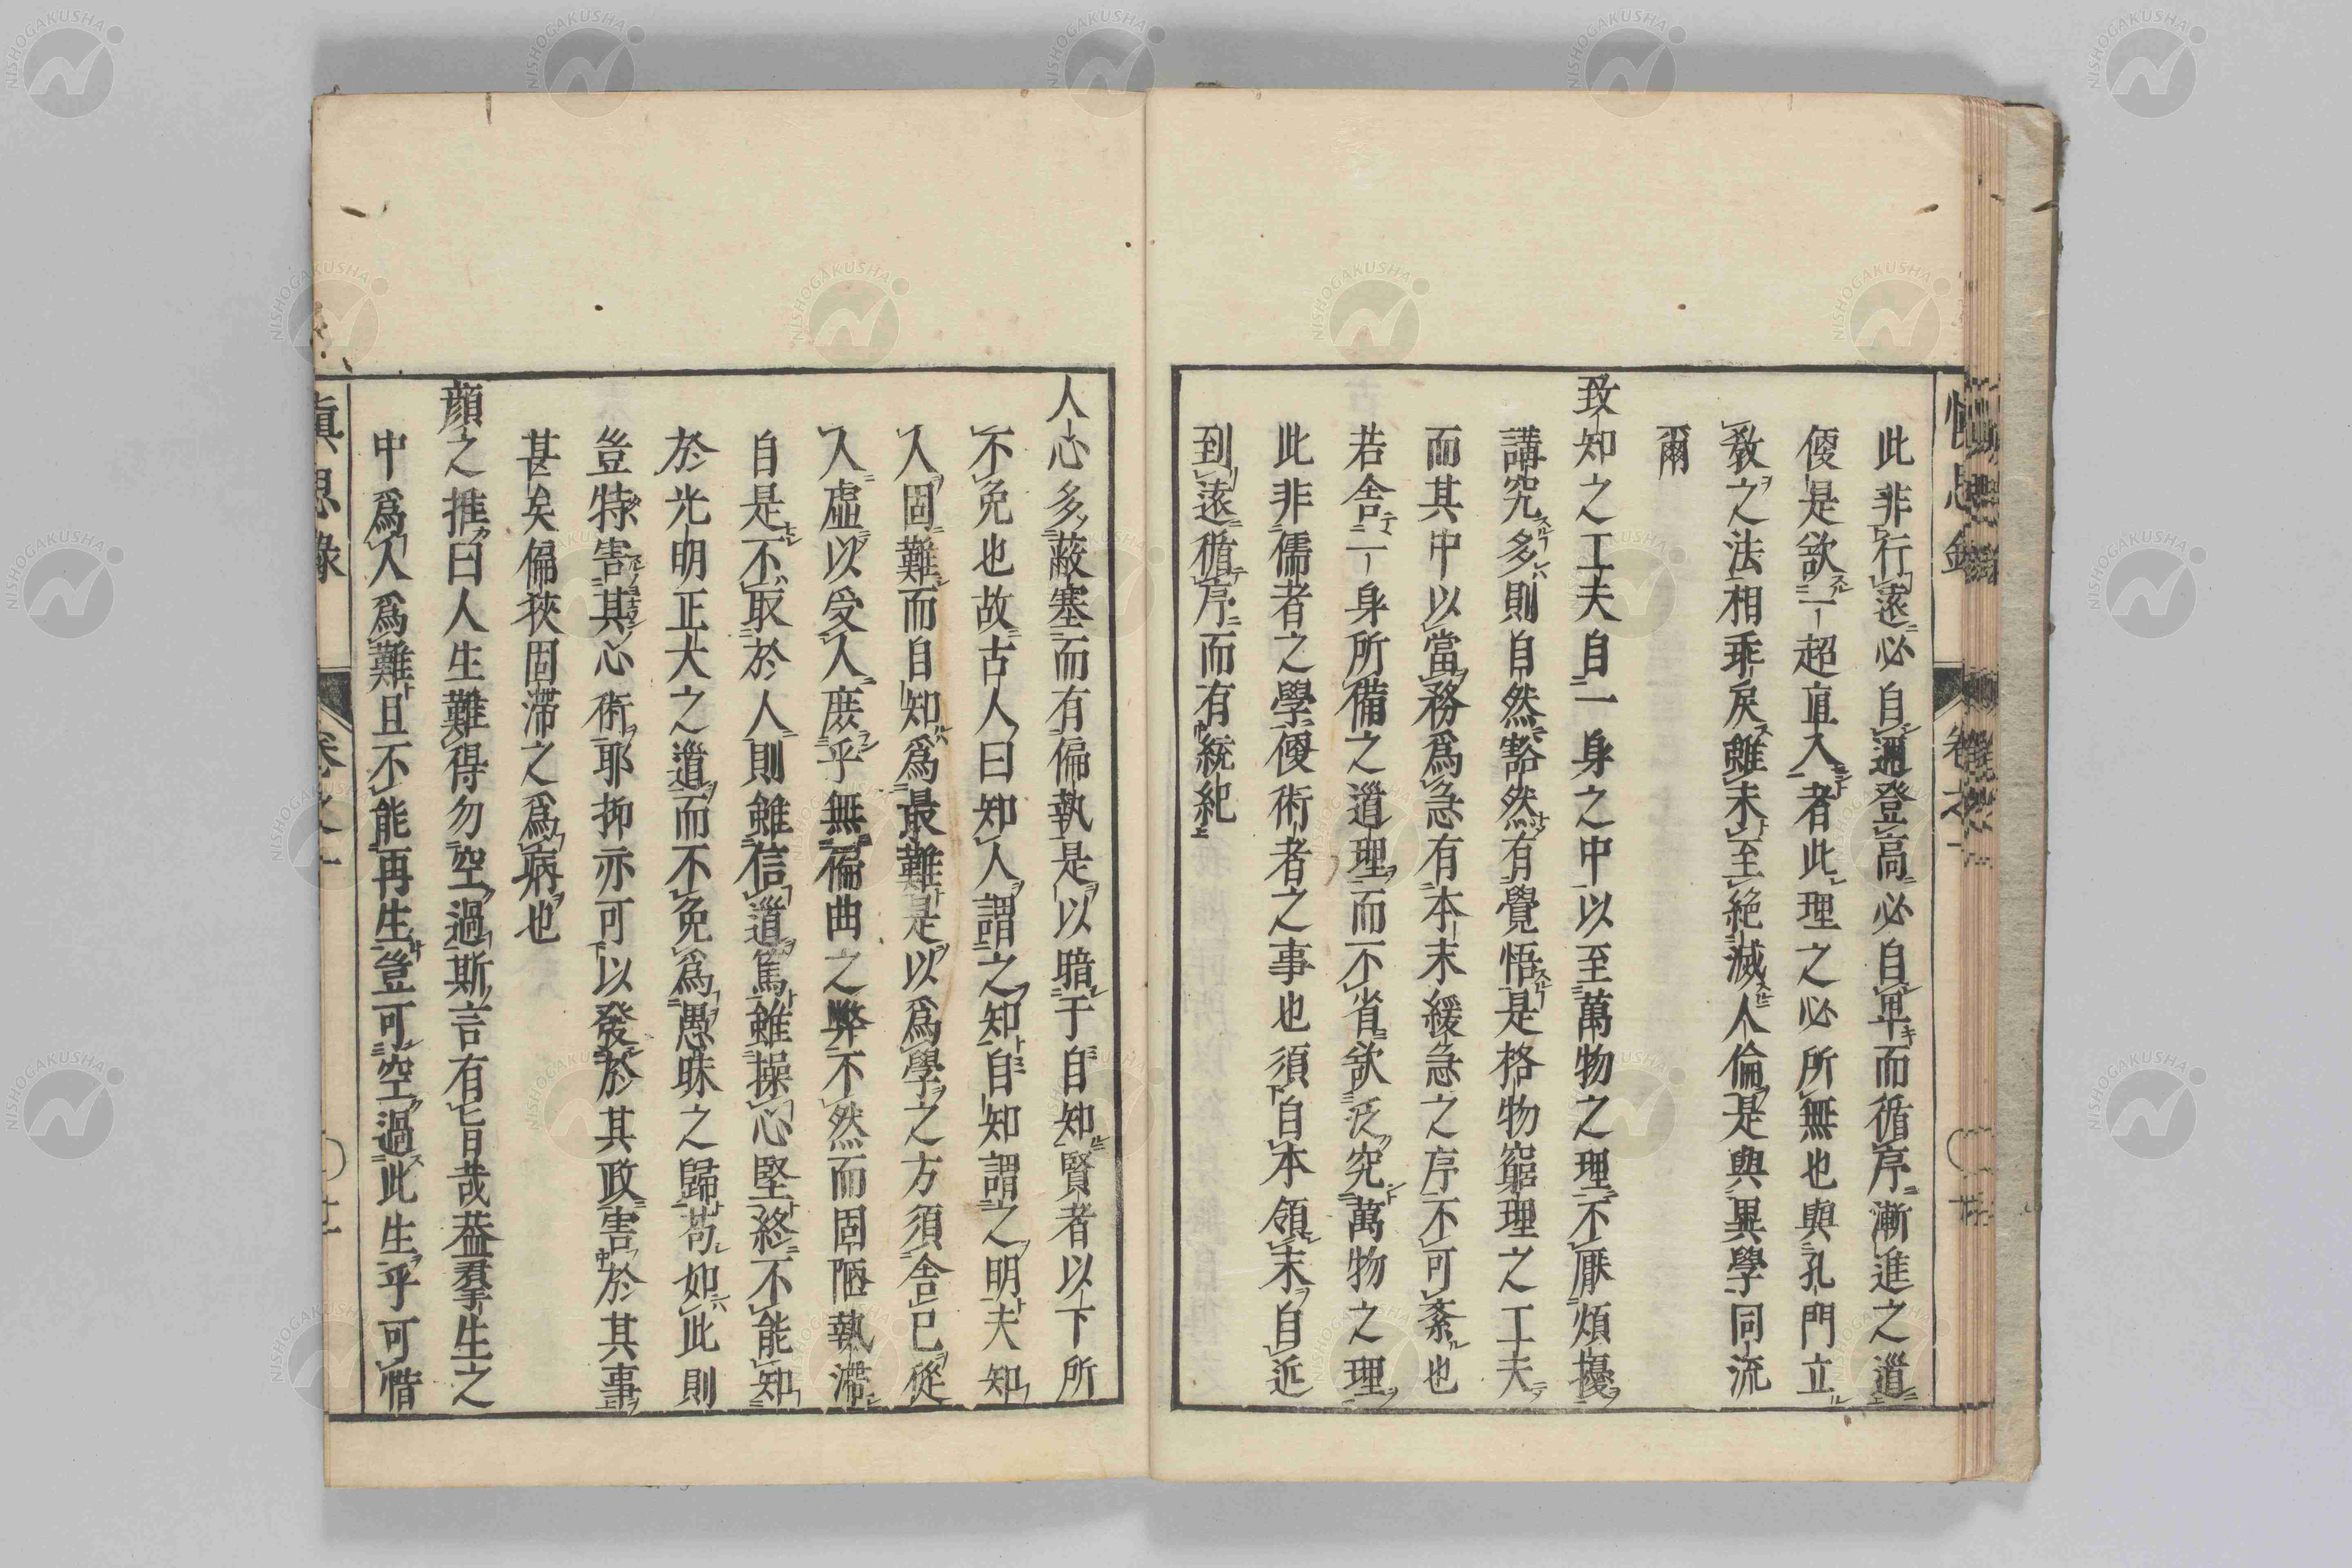 此非行遠必自邇登高必自卑而循序漸進之道
便是欲一超直入者此理之必所無也與孔門立
教之法相乖戾雖未至絶滅人倫是與異學同流
爾
致知之工夫自一身之中以至萬物之理不厭煩擾
講究多則自然豁然有覺悟是格物窮理之工夫
而其中以當務爲急有本末緩急之序不可紊也
若舍一身所備之道理而不省欲泛究萬物之理
此非儒者之學便術者之事也須自本領末自近
到遠循序而有統紀
人心多蔽塞而有偏執是以暗于自知賢者以下所
不免也故古人曰知人謂之知自知謂之明夫知
人固難而自知爲最難是以爲學之方須舍己從
人虛以受人庶乎無偏曲之弊不然而固陋執滯
自是不取於人則雖信道篤雖操心堅終不能知
於光明正大之道而不免爲愚昧之歸苟如此則
豈特害其心術耶抑亦可以發於其政害於其事
甚矣偏狹固滯之爲病也
顔之推曰人生難得勿空過斯言有旨哉葢羣生之
中爲人爲難且不能再生豈可空過此生乎可惜
愼思錄 卷之一
NISHOGAKUSHA